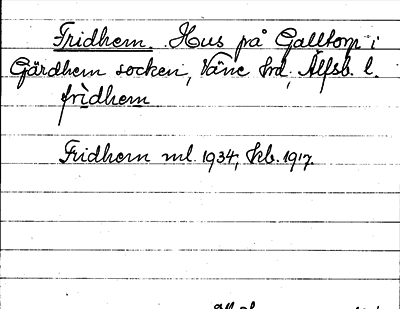 Fridhem. Hus på Galltorp i
Gärdhem socken, Väne hd, Älfsb. l.
frìdhem
Fridhem ml. 1934, kb. 1917.